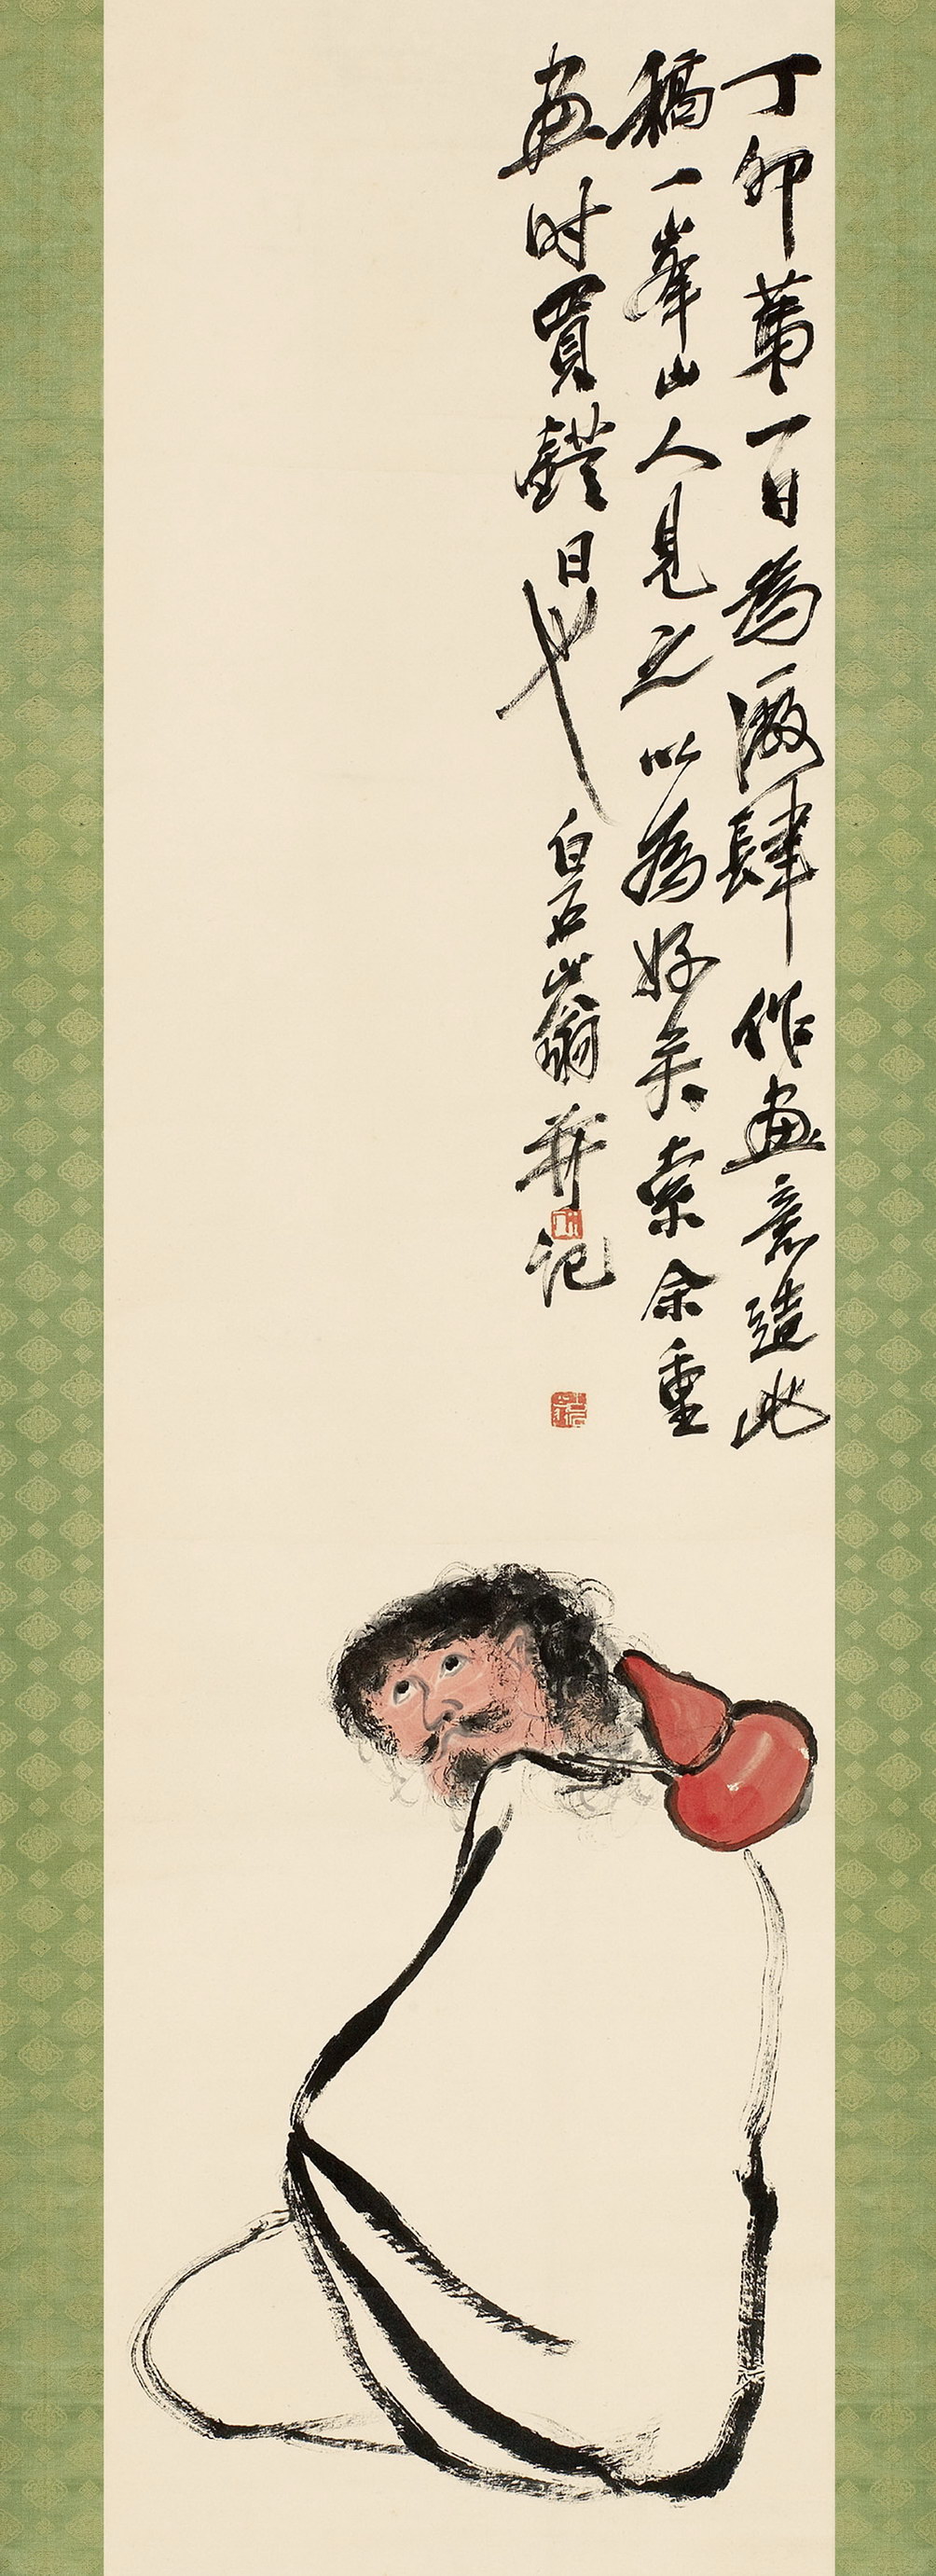 丁卯第一日為厰肆作畫意造此
稿一峯山人見之以為好矣索余重
畫时買鐙日也 白石山翁并记